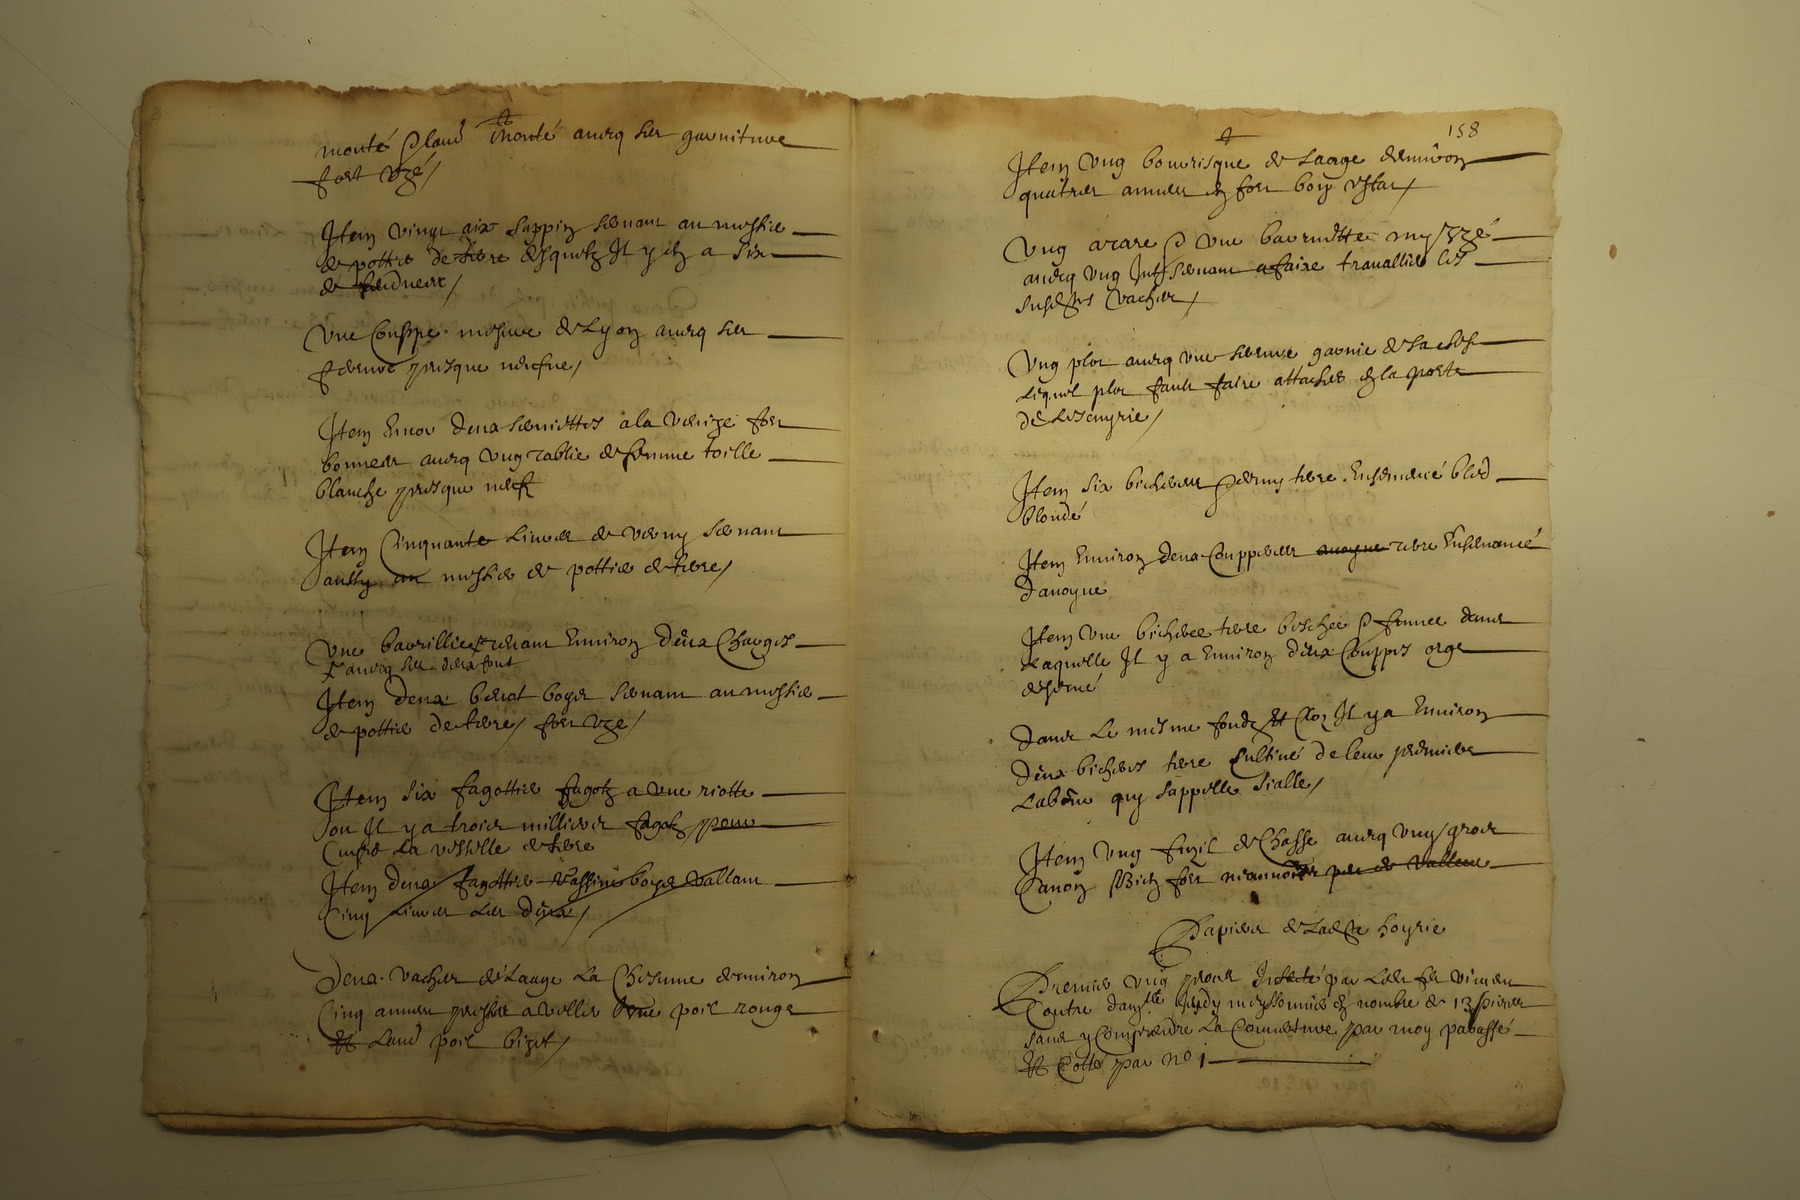 monté & laud monté avecq ses garniture
fort uzé /
Item vingt aix sappin servant au mestier
de pottier de terre desquelz Il y en a six
de
Une Couppe mesure de Lyon avecq ses
ferrure presque nefve /
Item Encor deux serviettes a la Venize fort
bonnes avecq ung tablié de femme toille
blanche presque neuf
Item Cinquante Livres de verny servant
aussy au mestier de pottier de terre /
Une barrillie tenant Environ deux Charges
avecq ses deux font
Item deux berot boys servant au mestier
de pottier de terre / fort uzé /
Item six fagottier fagotz a une riotte
ou Il y a trois milliers fagotz pour
Cuyre La vesselle de terre
Item deux fagottier boys vallant
Cinq Livres Les deux /
Deux vaches de Laage La Chescune denviron
Cinq annees preste a veller Une poil rouge
Et Laud poil bizet /
158
Item Ung bourrisque de Laage denviron
quatres annees en fort bon estat /
Ung arare & une barriotte my uzé
avecq Ung servant a faire travallier les
susdites vaches /
Ung plot avecq une serrure garnie de sa clef
Lequel plot fault faire attacher en la porte
de Lescuyrie /
Item six bicherees & demy terre Ensemencé bled
blondé
Item Environ deux Couppees terre Ensemencé
davoyne
Item Une bicheree terre beschee & fumee dans
Laquelle Il y a Environ deux Couppes orge
desemé
Dans Le mesme fondz Et Clos Il y a Environ
deux bicherees terre Cultivé de leur premiere
Labeur quy sappelle sialle /
Item Ung fuzil de Chasse avecq ung gros
Canon Bien fort
Papiers de Ladite hoyrie
Premier Ung proces par Led feu vincent
Contre dam.lle en nombre de 13 pieces
sans y Comprendre La Couverture par moy paraffé
Et Cotté par no 1